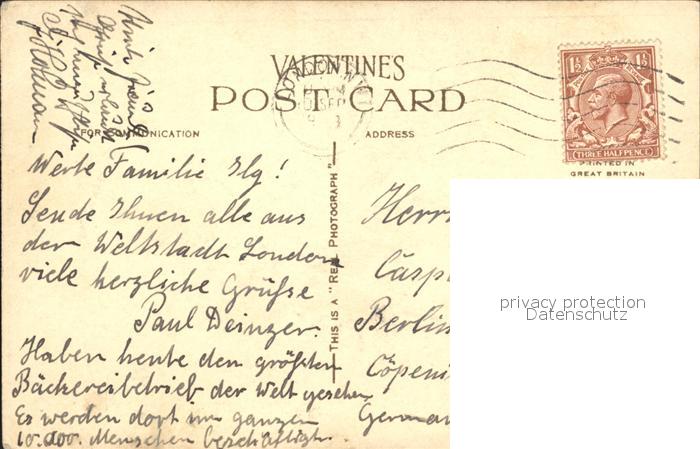 VALENTINES
POST CARD
FOR COMMUNICATION
ADDRESS
1½ 1½
THREE HALFPENCE
PRINTED IN
GREAT BRITAIN
THIS IS A "REAL PHOTOGRAPH"
Werte Familie Ilg!
Sende Ihnen alle aus
der Weltstadt London
viele herzliche Grüße
Paul Deinzer.
Haben heute den größten
Bäckereibetrieb der Welt gesehen
Es werden dort im ganzen
10.000. Menschen beschäftigt.
Herrn
Berlin
privacy protection
Datenschutz